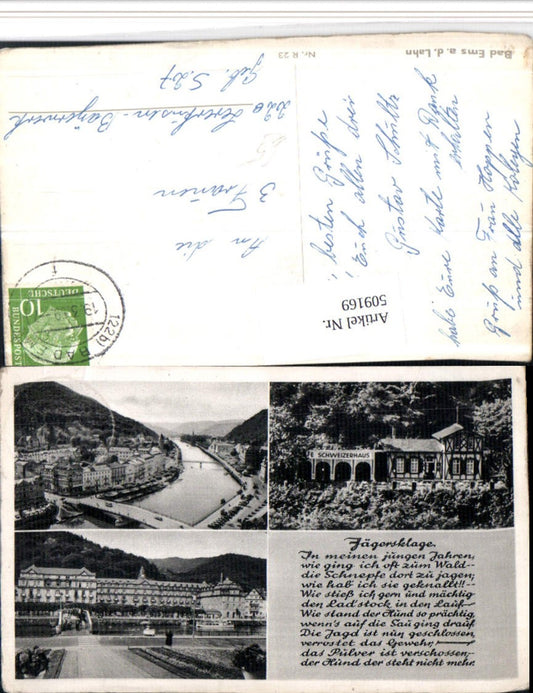 Bad Ems a. d. Lahn
Nr. R 23
An die
3 Frauen
22a Leverkusen-Bayerwerk
Geb. S. 207
besten Grüße
Euch allen drei
Gustav Schultz
habe Eure Karte mit Dank
erhalten
Gruß an Frau Hoppen
und alle Kolegen
10
DEUTSCHE
BUNDESPOST
(22b) BAD
Artikel Nr.
509169
FE SCHWEIZERHAUS
Jägersklage.
In meinen jungen Jahren,
wie ging ich oft zum Wald--
die Schnepfe dort zu jagen;
wie hab' ich sie geknallt!!--
Wie stieß ich gern und mächtig
den Ladstock in den Lauf--
Wie stand der Hund so prächtig,
wenn's auf die Sau ging drauf.
Die Jagd ist nun geschlossen,
verrostet das Gewehr,
das Pulver ist verschossen,
der Hund der steht nicht mehr.